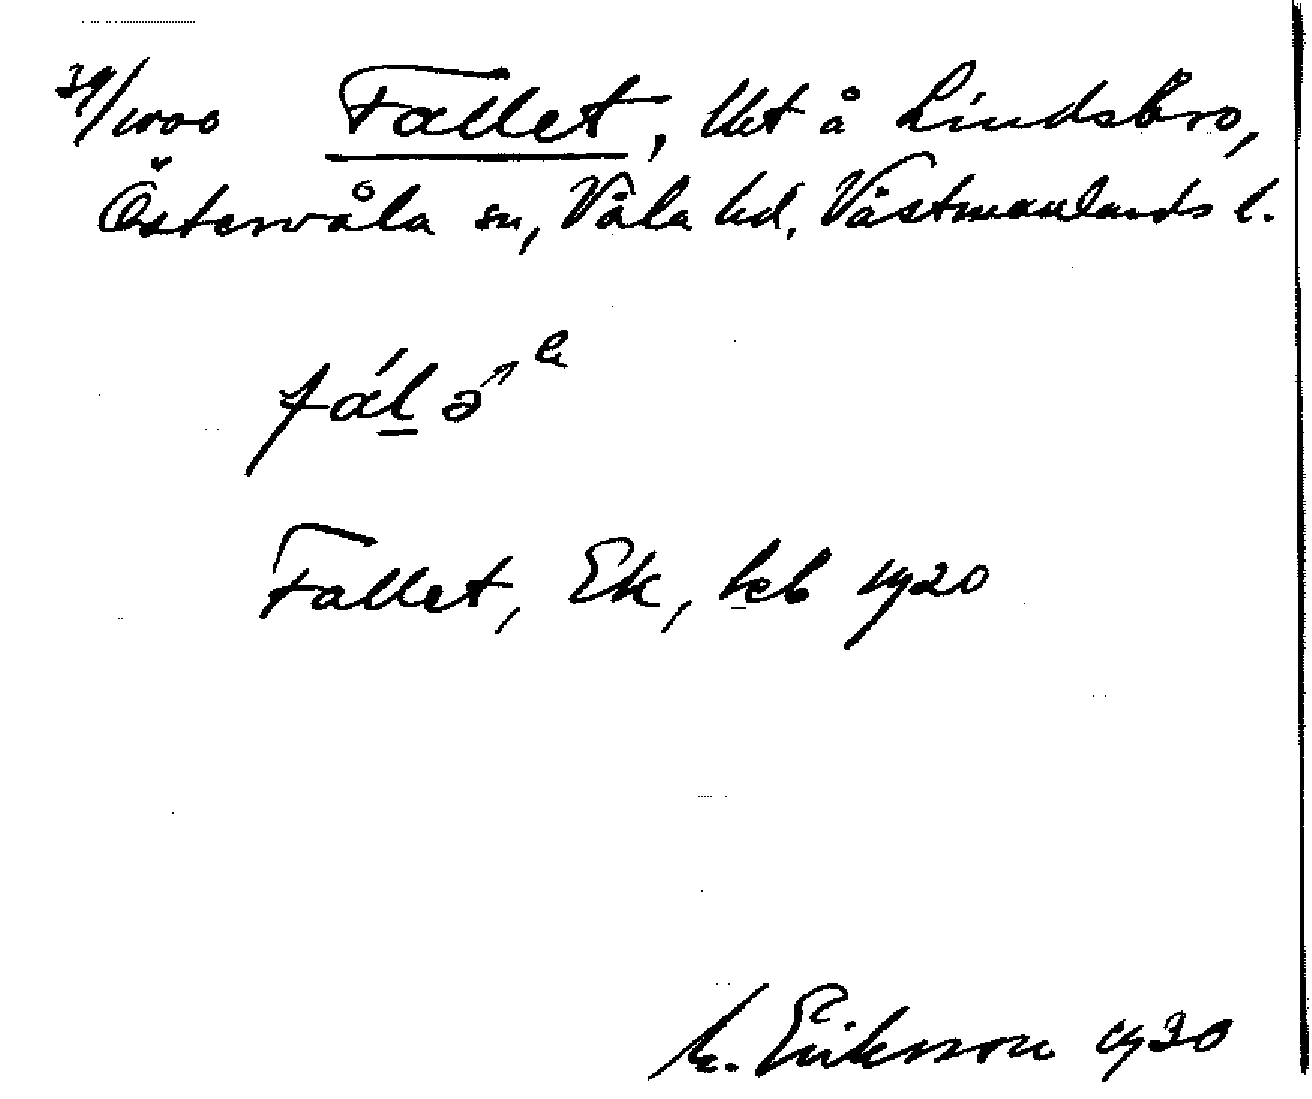 Fallet, lht å Lindsbro,
Östervåla sn, Våla hd, Västmanlands l.
fálə
Fallet, Ek, 1920
Eriksson 1930